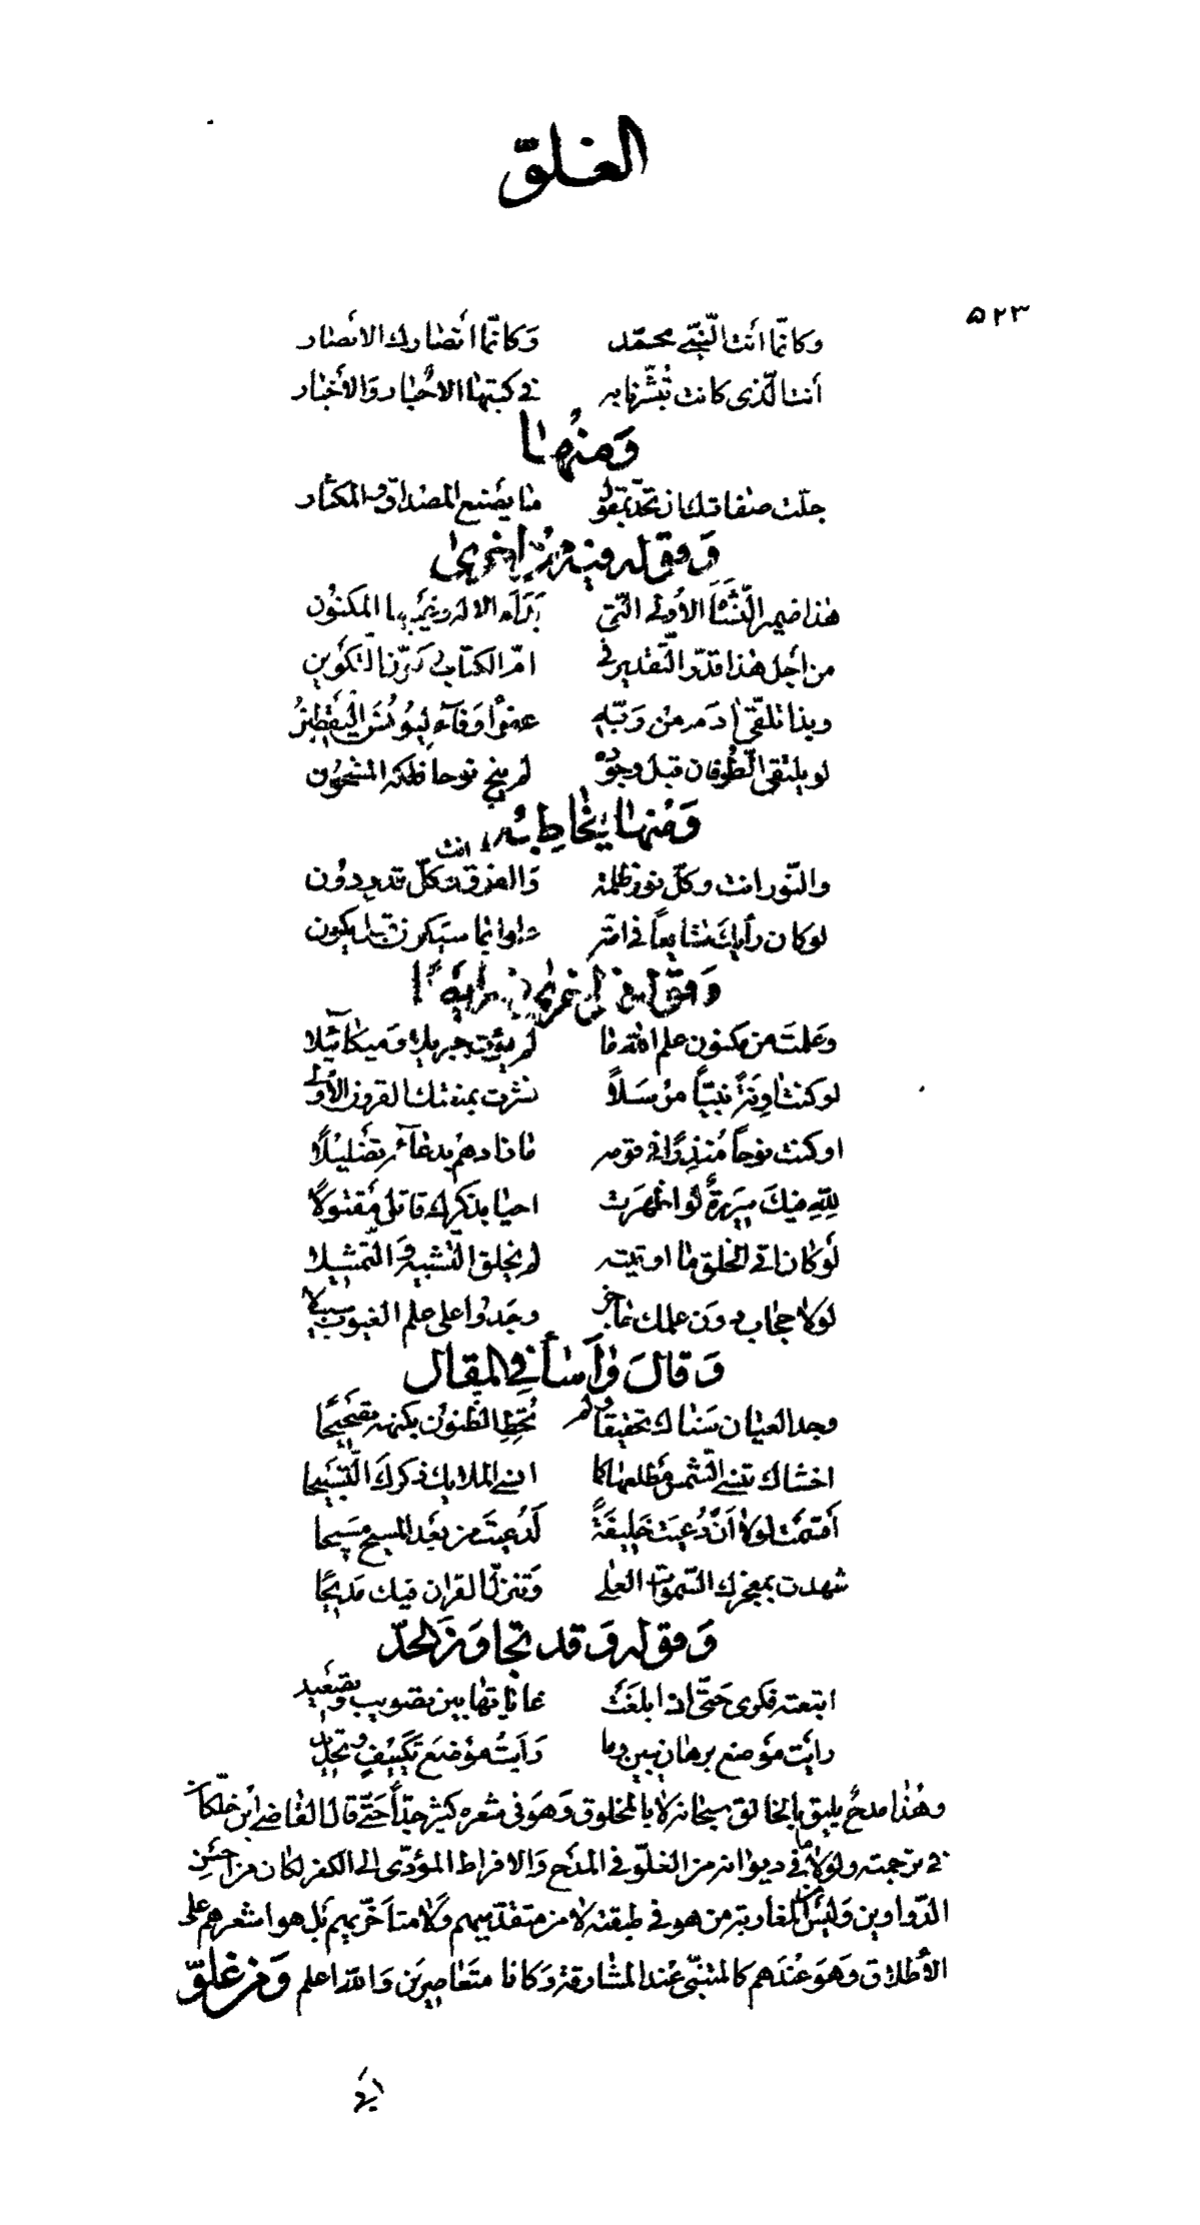 الغلوّ
٥٢٣
وكانّما أنت النّبيّ محمّد وَكانّما أنصارك الأنصار
أنت الّذى كانت تُبشّرنا به فى كتبها الأحبار والأخبار
وَمنها
جلّت صفاتك ان تحدّ بمقول ما يصنع المصداق والمكثار
وَقوله فيه من اخرى
هذا ضمير النّشأة الأولى الّتى بدأ الاله وغيبها المكنون
من أجل هذا قدّر التّقدير فى امّ الكتاب وكوّن التّكوين
وبذا تلقّى ادم من ربّه عفوًا وفآء ليونس اليقطينُ
لو يلتقى الطّوفان قبل وجوده لم ينج نوحا فلكه المشحون
وَمنها يخاطبه
والنّور انت وكلّ نور ظلمة والفوق انت وكلّ قدر دون
لو كان رأيك شايعاً فى امّة علموا بما سيكون قبل يكون
وَقوله من اخرى فيه أيضًا
وعلمتَ من مكنون علم الله ما لم يؤت جبريلا وميكآئيلا
لو كنت اونة نبيّاً مرسلاً نشرت بمبعثك القرون الأولى
او كنت نوحاً مُنذرًا فى قومه ما زادهم بدعآئه تضليلًا
لِلّهِ فيكَ سريرةٌ لو اظهرت احيا بذكرك قاتل مقتولًا
لو كان اتى الخلق ما اوتيته لم يخلق التّشبيه والتّمثيلا
لولا حجاب دون علمك حاجز وجدوا على علم الغيوب سبيلا
وَقالَ وَأسآء فى المقال
وجد العيان سناك تحقيقًا ولم تُحط الظّنون بكنهه تصحيحًا
اخشاك تنسى الشّمس مطلعها كما انسى الملايك ذكرك التّسبيحا
أقسمت لولا أن دُعيت خليفةً لدُعيتَ من بعد المسيح مسيحا
شهدت بمعجزك السّموات العلى وَتنزّل القران فيك مديحًا
وَقوله وَقد تجاوز الحدّ
اتبعته فكرى حتّى اذا بلغت غاياتها بين تصويب وتصعيد
رايت موضع برهان يبين وما رَأيتُ موضع تكييفٍ وتحديد
وهذا مدحٌ يليق بالخالق سبحانه لا بالمخلوق وَهوَ فى شعره كثير جدّاً حَتّى قال القاضى ابن خلّكان
فى ترجمته ولولا ما فى ديوانه من الغلوّ فى المدح والافراط المؤدّى الى الكفر لكان من أحسن
الدّواوين وَليس فى المغاربة من هو فى طبقته لا من متقدّميهم ولا متأخّريهم بل هو اشعرهم على
الأطلاق وَهوَ عندهم كالمتنبّى عند المشارقة وكانا متعاصرين والله اعلم وَمن غلوّ
ابى